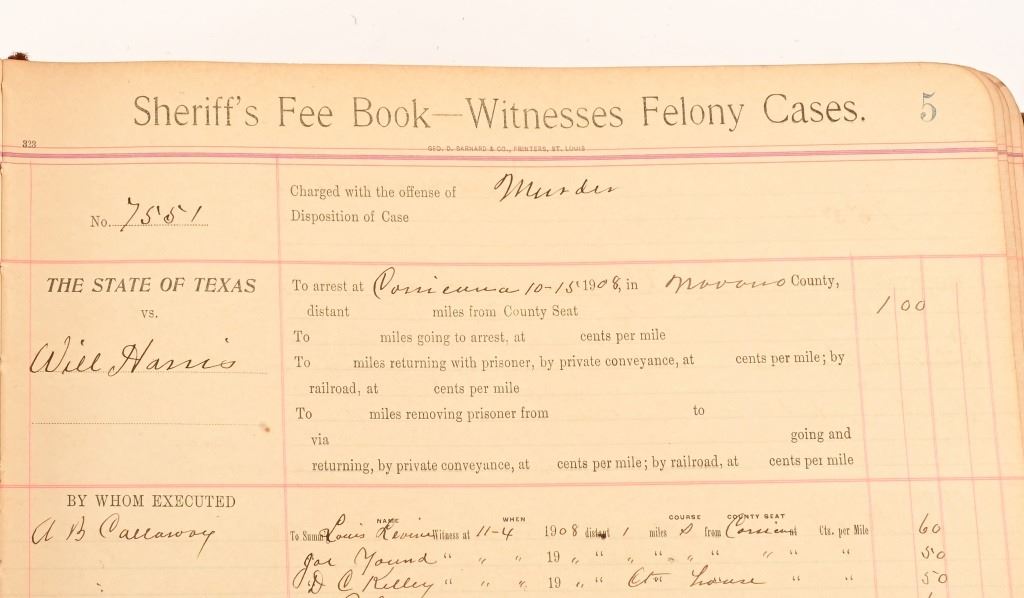 Sheriff's Fee Book—Witnesses Felony Cases. 5
323
GEO. D. BARNARD & CO., PRINTERS, ST. LOUIS
Charged with the offense of Murder
No. 7551
Disposition of Case
THE STATE OF TEXAS
To arrest at Corsicana 10-15 1908, in Navarro County,
1 00
vs.
distant miles from County Seat
To miles going to arrest, at cents per mile
Will Harris
To miles returning with prisoner, by private conveyance, at cents per mile; by
railroad, at cents per mile
To miles removing prisoner from to
via going and
returning, by private conveyance, at cents per mile; by railroad, at cents per mile
BY WHOM EXECUTED
NAME WHEN COURSE COUNTY SEAT
A B Callaway
To Sum Louis Levine Witness at 11-4 1908 distant 1 miles S from at Cts. per Mile 60
Joe Young " " " 19 " " " " " " " " 50
D C Kelley " " " 19 " " Ct House " " 50